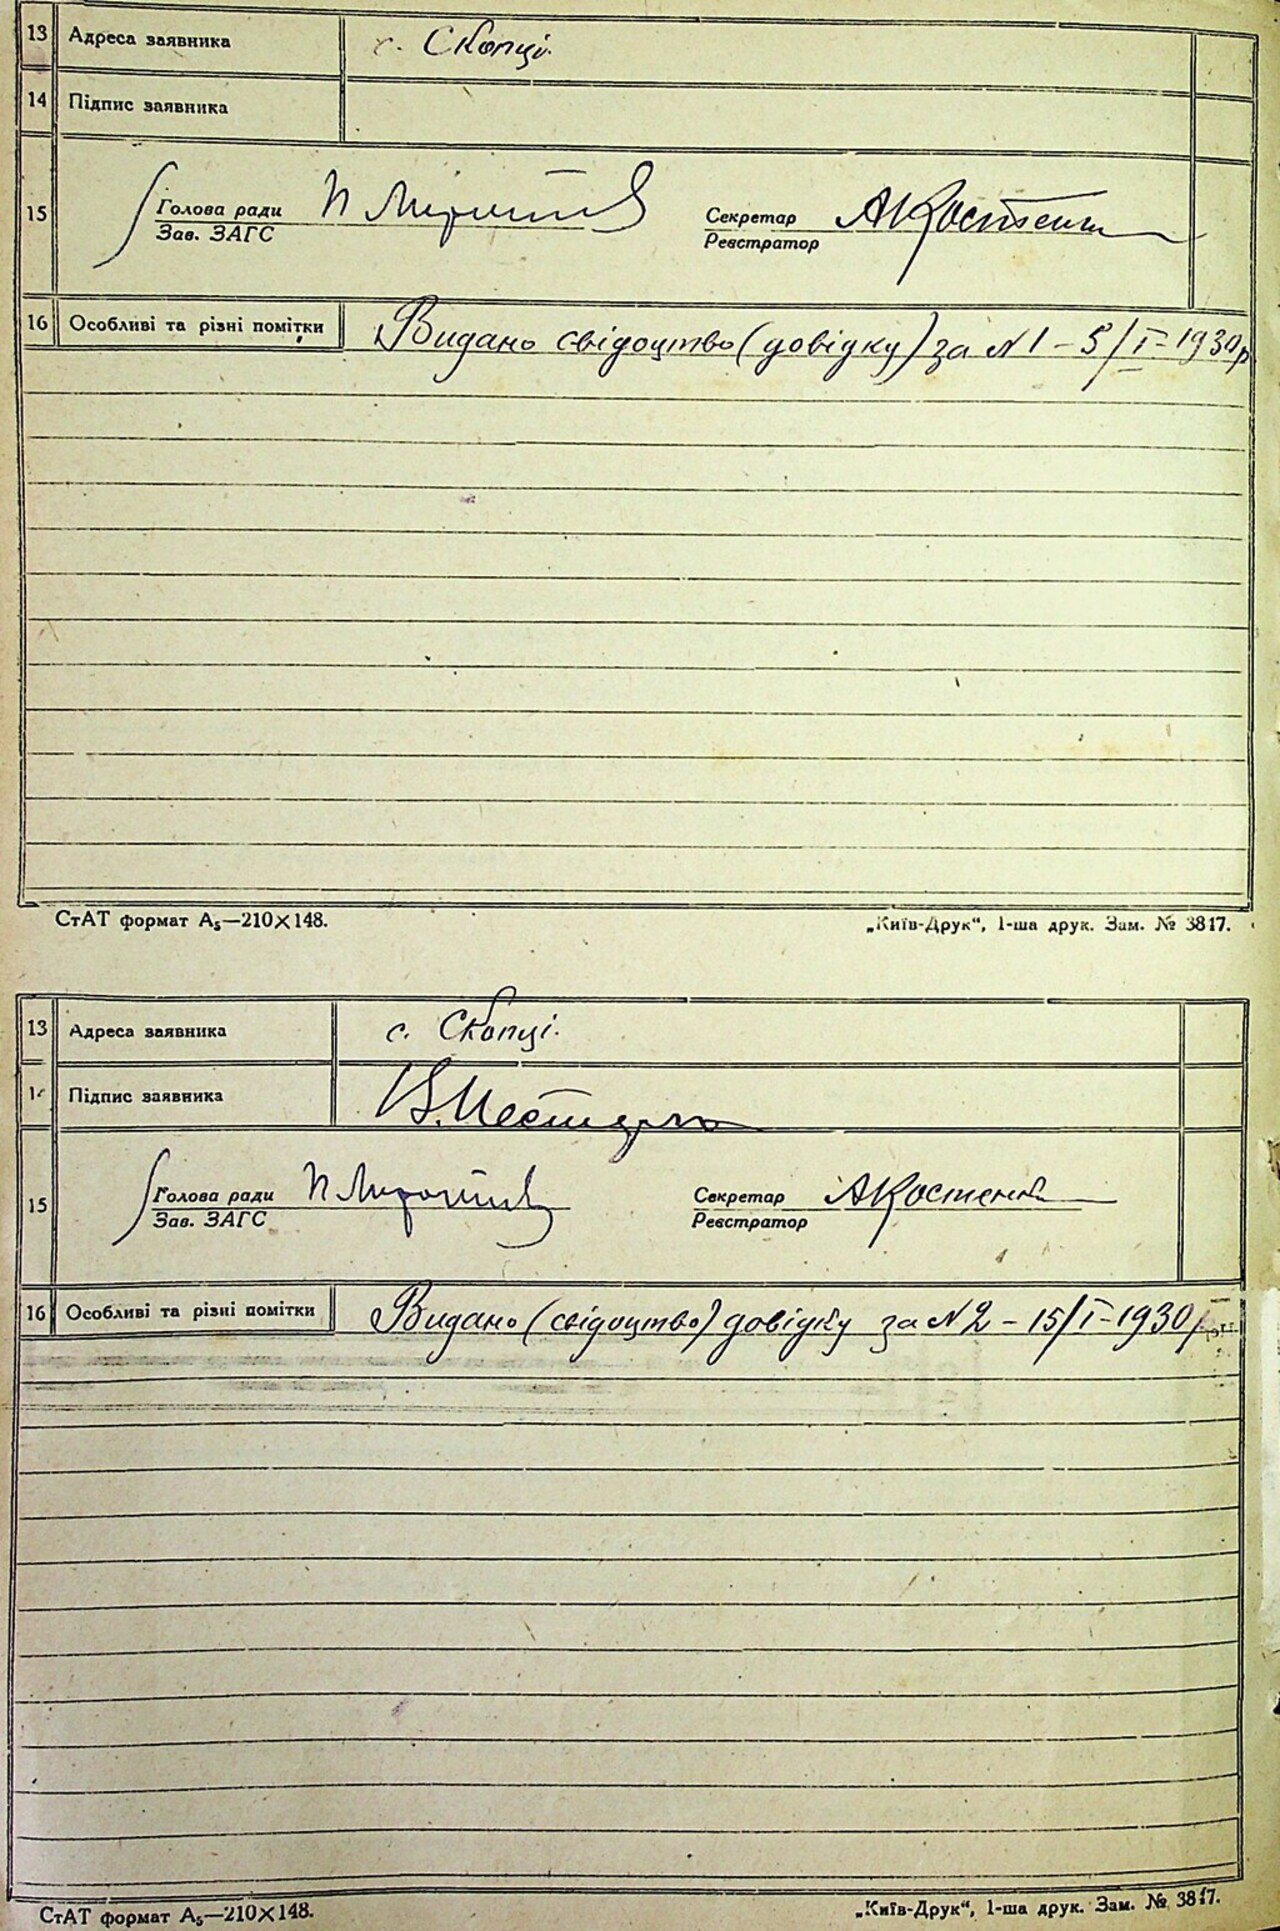 13 Адреса заявника с. Скопці.
14 Підпис заявника
15 Голова ради Секретар А Костенко
Зав. ЗАГС Реєстратор
16 Особливі та різні помітки Видано свідоцтво (довідку) за № 1 – 5/I–1930р
СтАТ формат А₅—210×148. „Київ-Друк“, 1-ша друк. Зам. № 3817.
13 Адреса заявника с. Скопці.
14 Підпис заявника
15 Голова ради Секретар А Костенко
Зав. ЗАГС Реєстратор
16 Особливі та різні помітки Видано (свідоцтво) довідку за № 2 – 15/I–1930р
СтАТ формат А₅—210×148. „Київ-Друк“, 1-ша друк. Зам. № 3817.